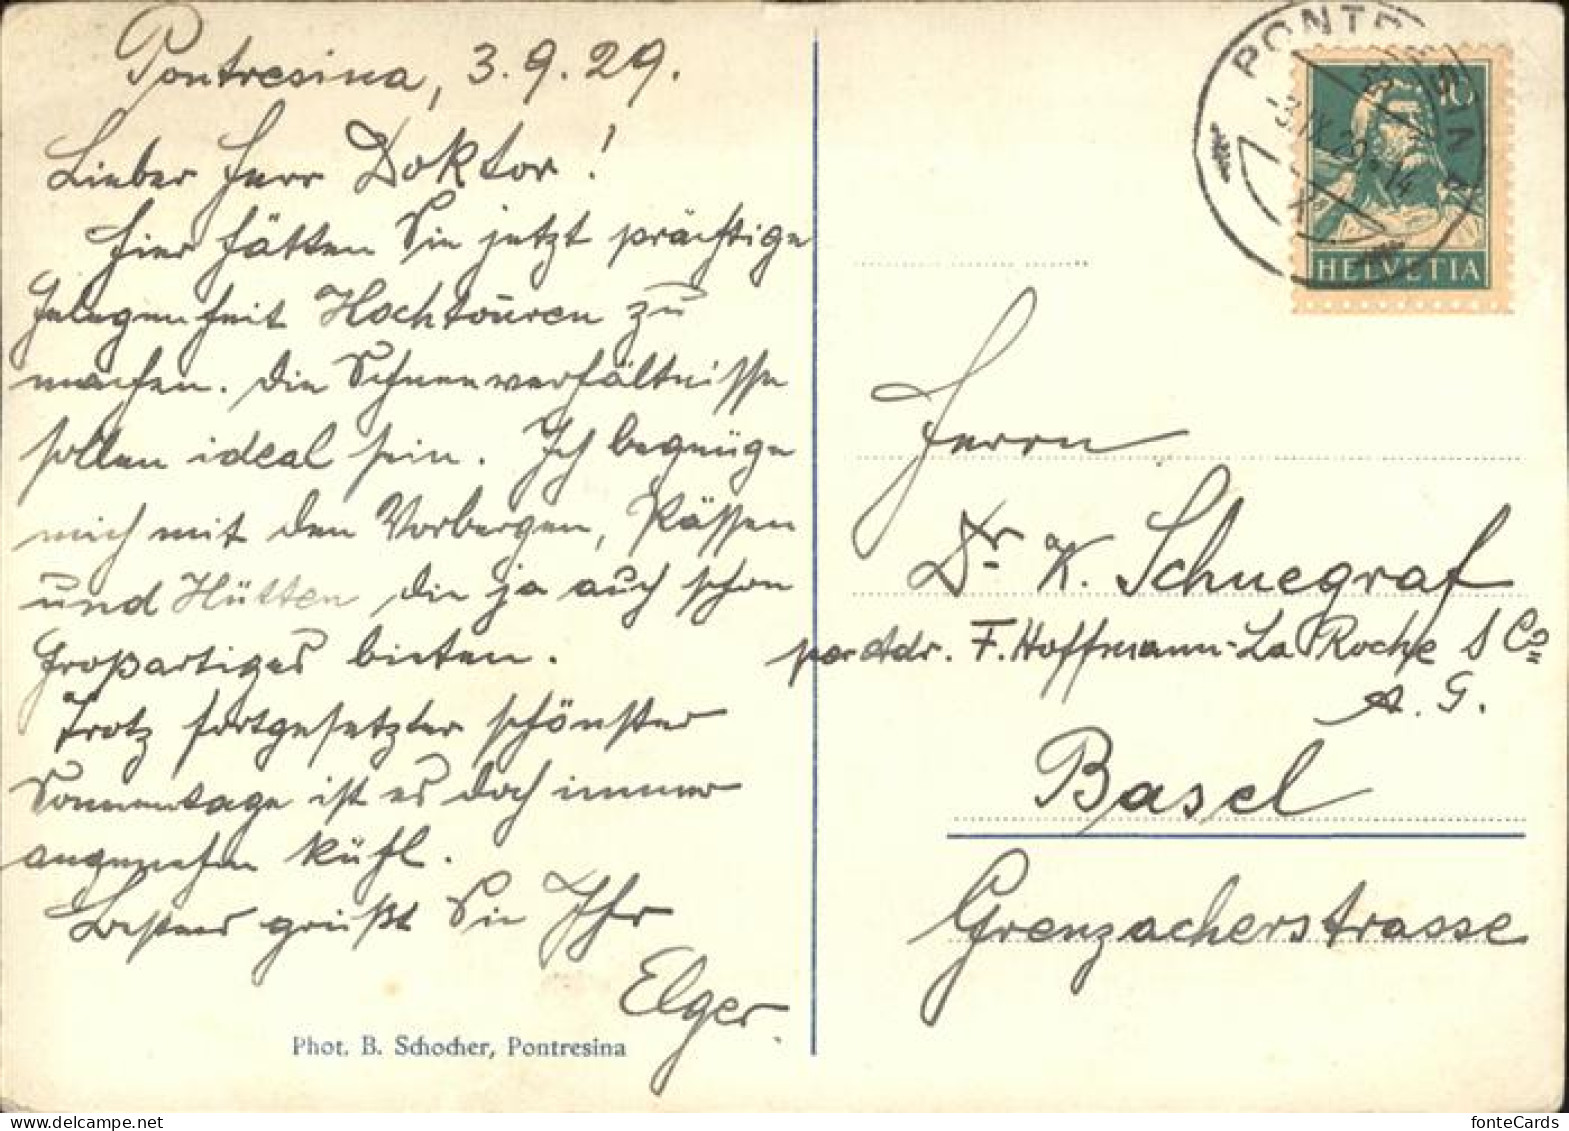 Pontresina, 3.9.29.
Lieber Herr Doktor!
Hier hätten Sie jetzt prächtige
Gelegenheit Hochtouren zu
machen. Die Schneeverhältnisse
sollen ideal sein. Ich begnüge
mich mit den Vorbergen, Pässen
und Hütten die ja auch schon
Großartiges bieten.
Trotz fortgesetzter schönster
Sonnentage ist es doch immer
angenehm kühl.
Bestens grüßt Sie Ihr
Elger.
Phot. B. Schocher, Pontresina
PONTRESINA
3.IX.29.14
10
HELVETIA
Herrn
Dr. K. Schnegraf
per Adr. F. Hoffmann-La Roche & Co
A. G.
Basel
Grenzacherstrasse
fonteCards